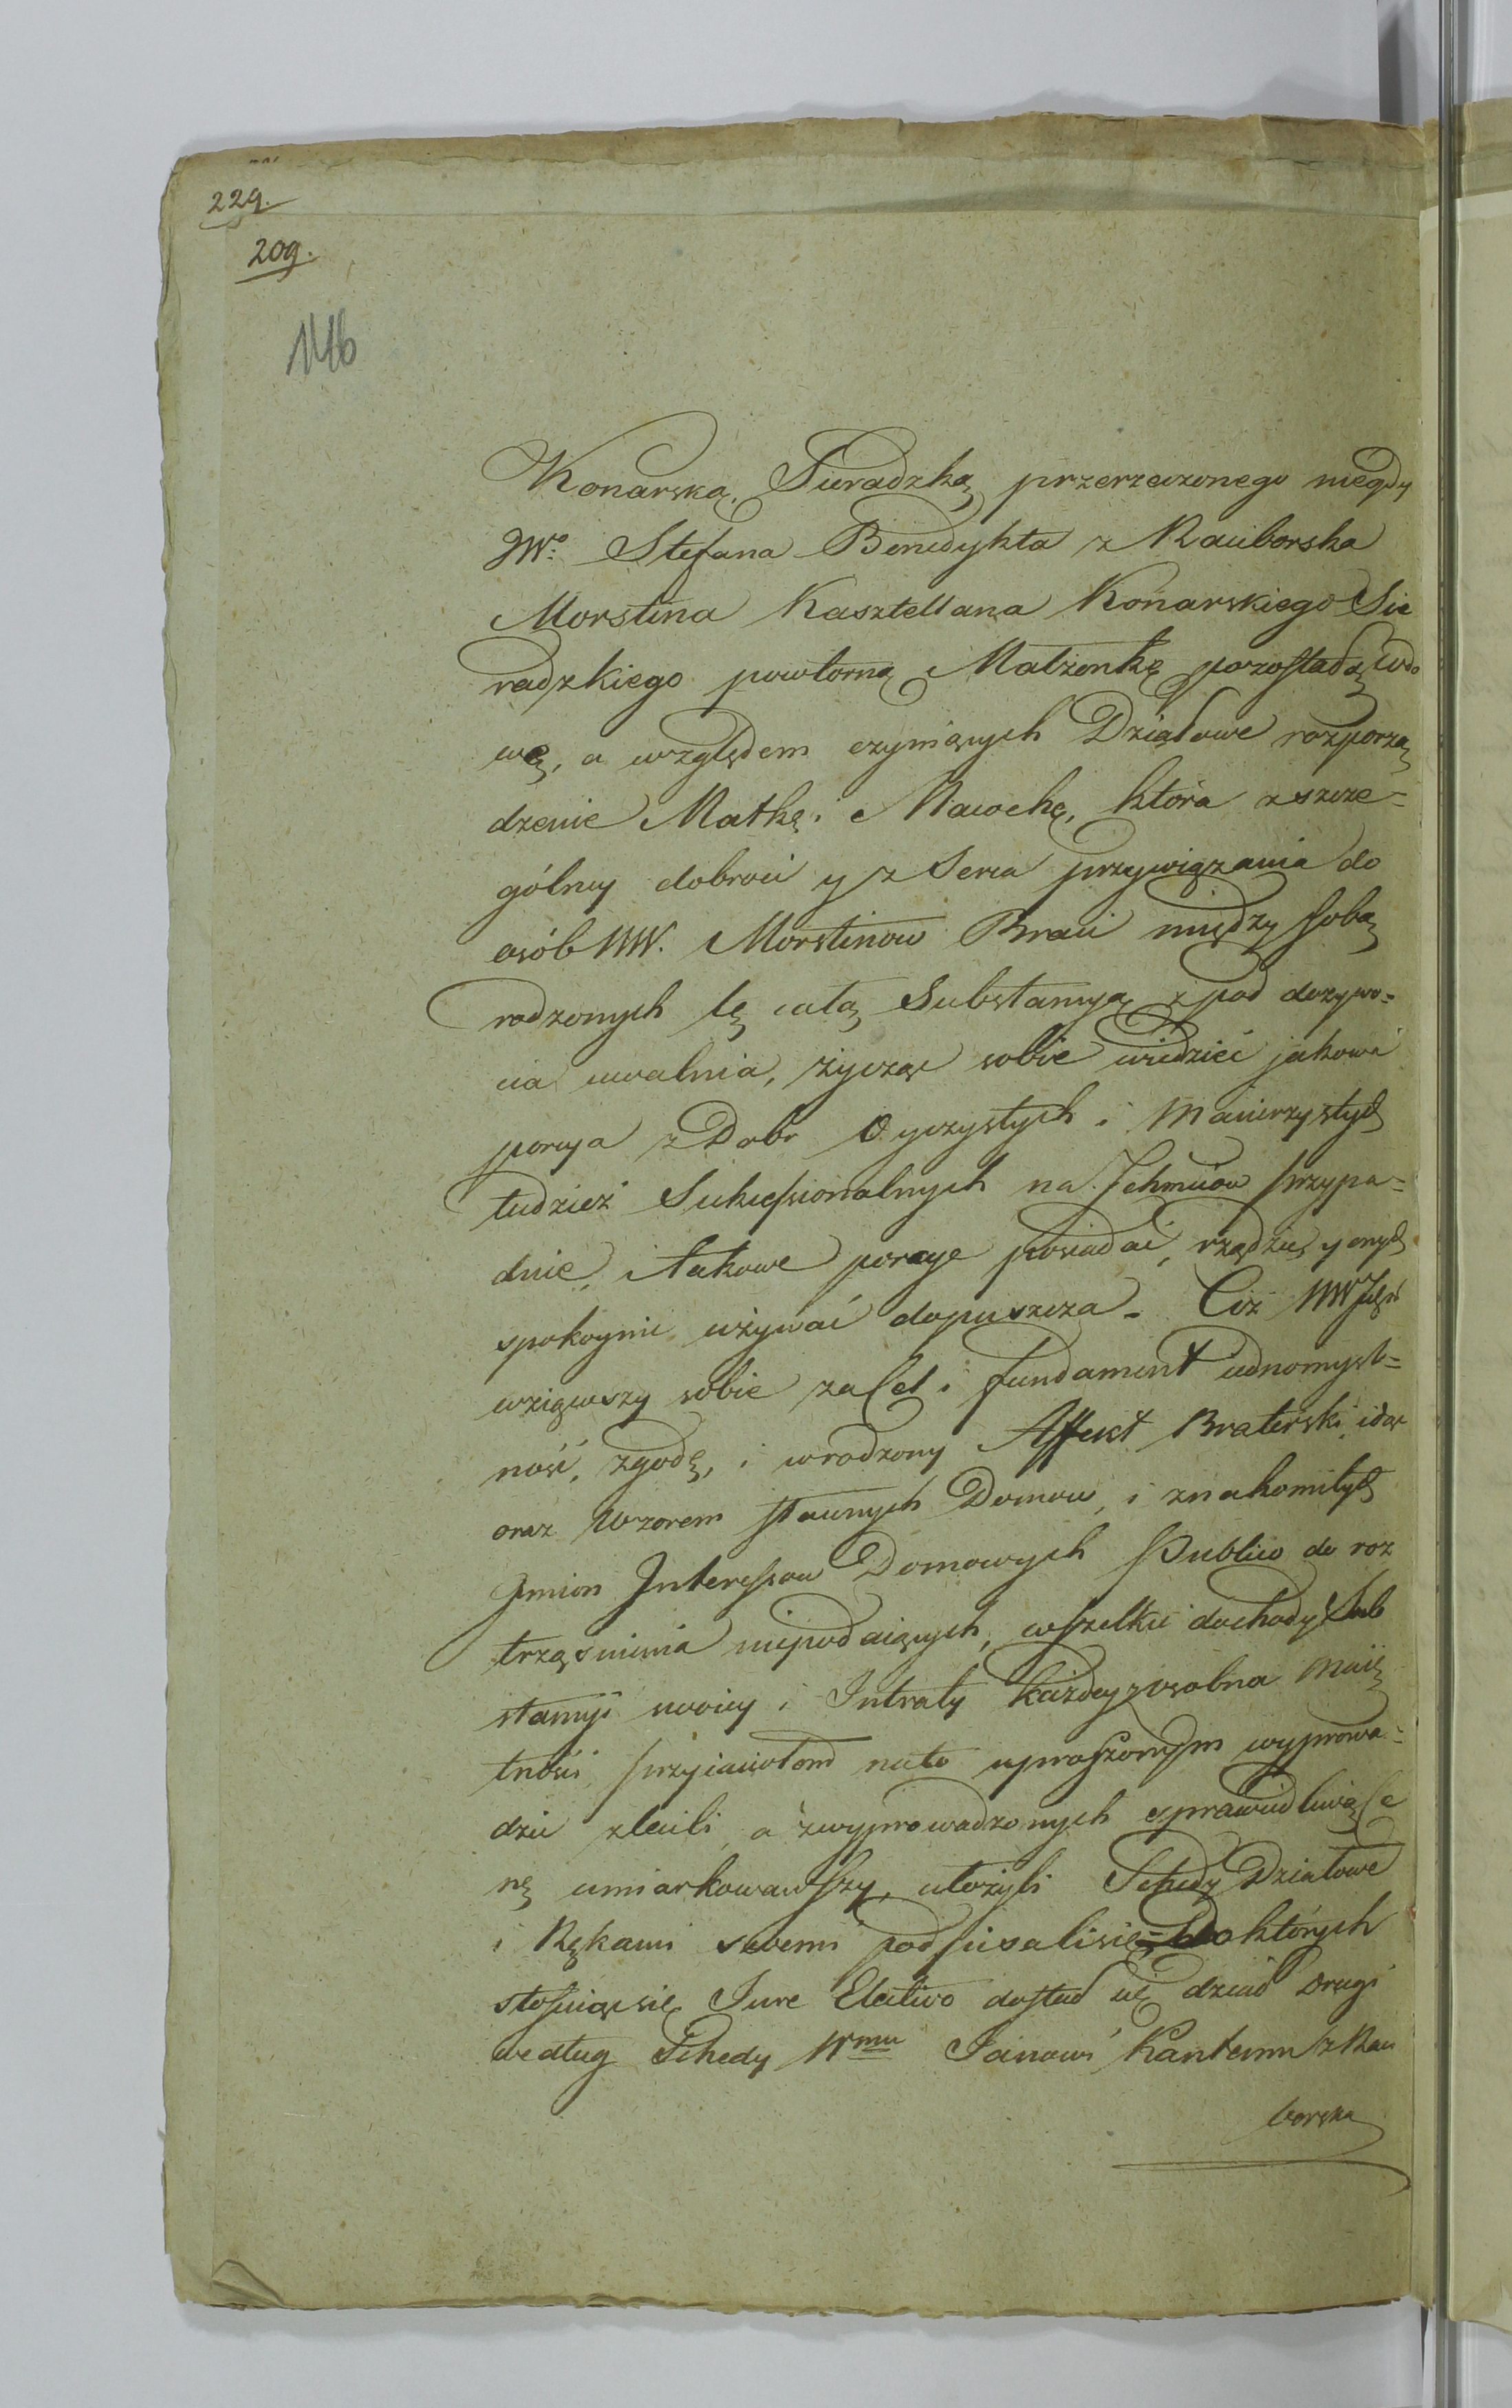 229.
209.
116
Konarską, Sieradzką przerzeczonego niegdy
JWo. Stefana Benedykta z Raciborska
Morstina Kasztellana Konarskiego Sie
radzkiego powtorną Małżonkę pozostałą wdo
wę, a względem czyniących Działowe rozporzą
dzenie Matkę i Macochę, która z szcze=
gólney dobroci y z Serca przywiązania do
osób WW. Morstinow Braci między sobą
rodzonych tę całą Substancyą z pod dożywo=
cia uwalnia, życząc sobie widzieć jakowa
porcya z Dobr Oyczystych i Macierzystych
tudzież Sukcessionalnych na Jchmciow przypa=
dnie, i takowe porcye posiadać, rządzić y onych
spokoynie używać dopuszcza. Ciż WW
wziąwszy sobie za Cel i fundament iednomyśl=
ność, zgodę, i wrodzony Affekt Braterski, idąc
oraz wzorem sławnych Domow, i znakomitych
Jmion Jnteressow Domowych Publico do roz
trząśnienia niepodaiących, wszelkie dochody Sub
stancyi swoiey i Intraty każdey z osobna Maię
tności przyiaciołom na to uproszonym wyprowa=
dzić zlecili, a z wyprowadzonych sprawiedliwą Ce
nę umiarkowawszy, ułożyli Schedy Działowe
i Rękami swemi podpisali się = do których
stosuiąc się Jure Electivo dostał się dział drugi
według Schedy Wmu Janowi Kantemu z Raci
borska